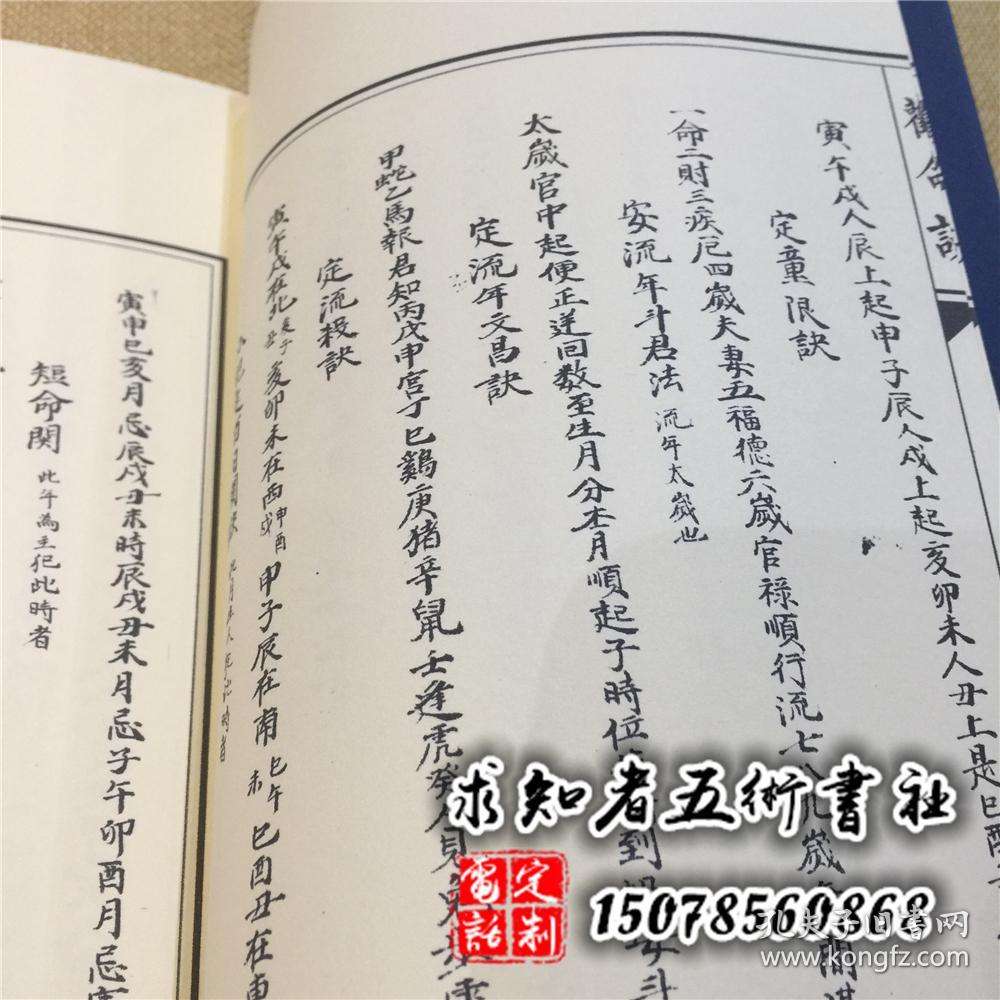 寅午戌人辰上起申子辰人戌上起亥卯未人丑上是巳酉
定童限訣
一命二財三疾厄四歲夫妻五福德六歲官祿順行流七八九歲
安流年斗君法 流年太歲也
太歲宮中起便正逆回数至生月分本月順起子時位
到
斗
定流年文昌訣
甲蛇乙馬報君知丙戊申宮丁己鷄庚猪辛鼠壬逢虎癸人見
定流殺訣
寅午戌在北亥子丑亥卯未在西申酉戌甲子辰在南巳午未巳酉丑在東
寅申巳亥月忌辰戌丑未時辰戌丑未月忌子午卯酉月忌
短命関 此午為主犯此時者
求知者五術書社
定制
電話
15078560868
孔夫子旧書网
www.kongfz.com